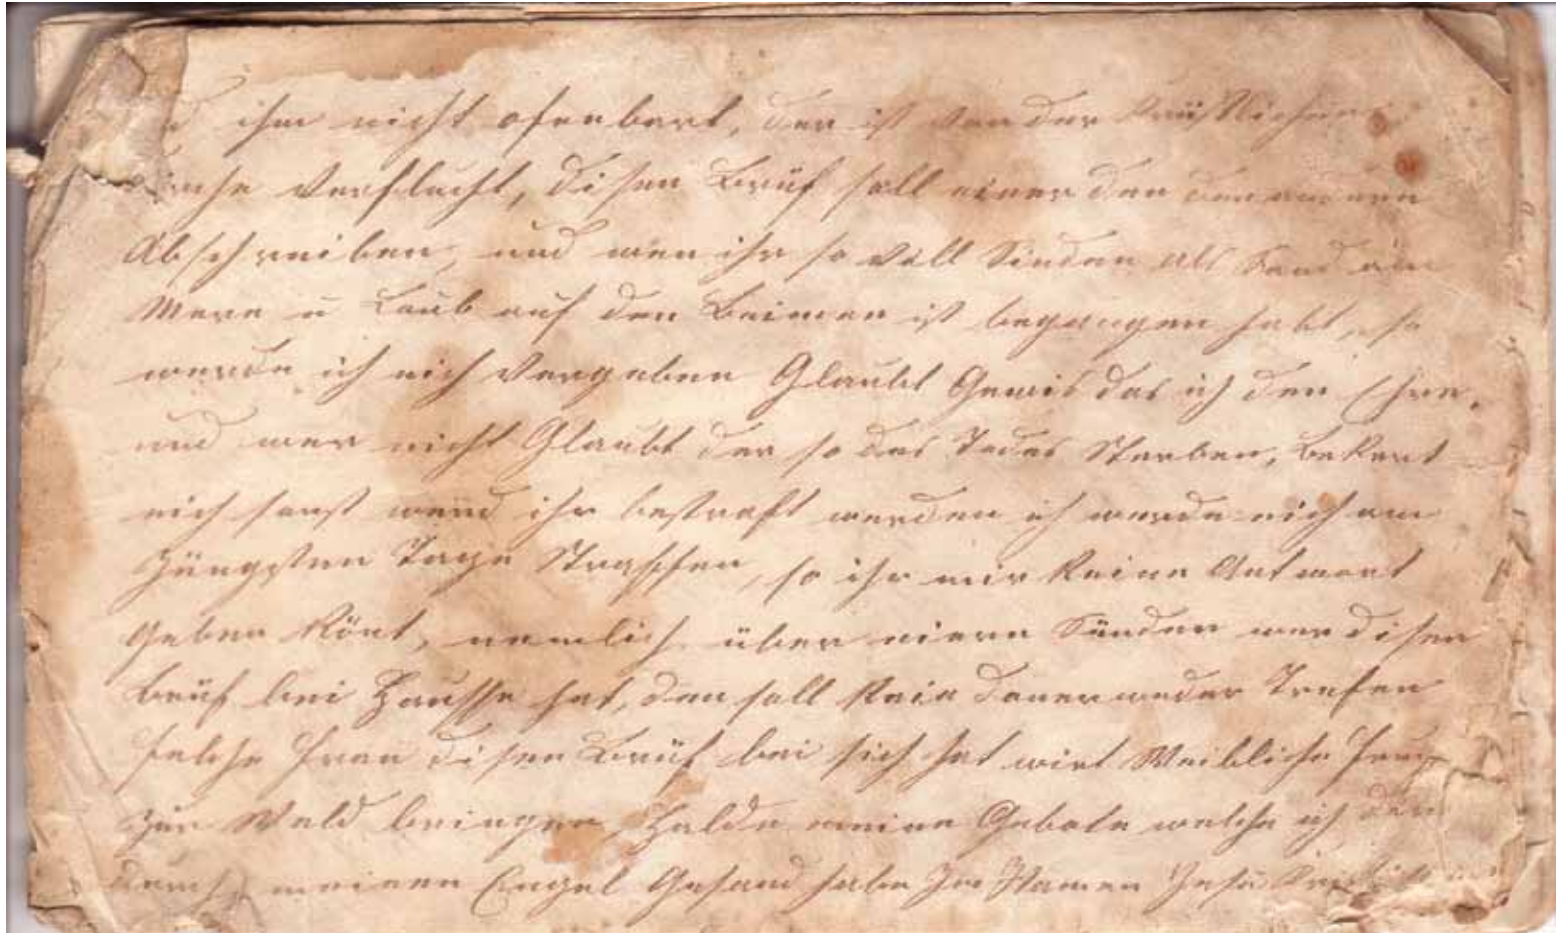 ihm nicht ofenbart, der ist von der
verflucht, disen Brüf soll einer den andern
Abschreiben, und wen ihr so vill Sinden als Sand am
Mere u Laub auf den Beimen ist begangen habt, so
werde ich eich Vergeben Glaubt Gewis das ich den Ehre,
und wer nicht Glaubt der so des Todes Sterben, bekert
eich sonst werd ihr bestraft werden ich werde eich am
Jüngsten Tage Straffen, so ihr mir keine Antwort
Geben könt, nemlich über eiere Sünden wer disen
Brüf bei Hausse hat, den soll kein Donerweder Trefen
solche Frau disen Brüf bei sich hat wirt Weibliche
zur Weld bringen, Halde meine Gebote welche ich
durch meinen Engel Gesand habe Im Namen Jesu